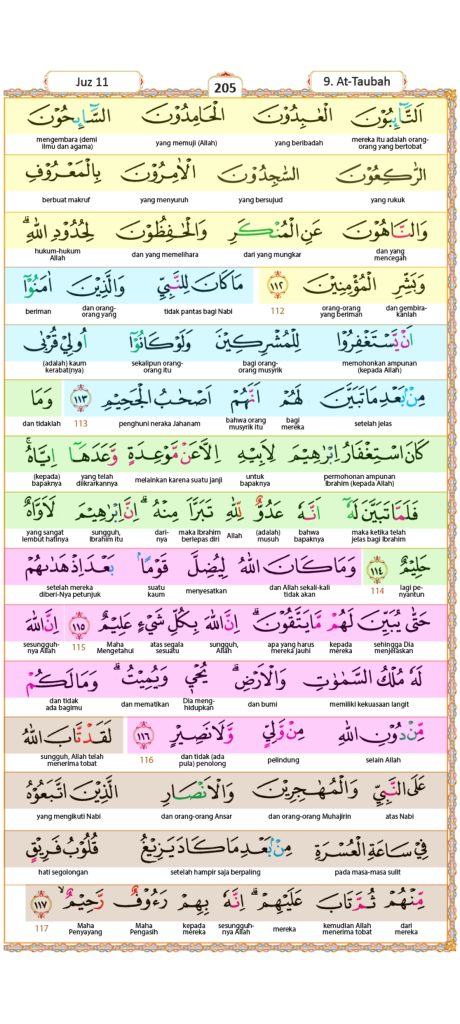 Juz 11
205
9. At-Taubah
اَلتَّاۤىِٕبُوْنَ الْعٰبِدُوْنَ الْحَامِدُوْنَ السَّاۤىِٕحُوْنَ
mereka itu adalah orang-orang yang bertobat yang beribadah yang memuji (Allah) mengembara (demi ilmu dan agama)
الرّٰكِعُوْنَ السّٰجِدُوْنَ الْاٰمِرُوْنَ بِالْمَعْرُوْفِ
yang rukuk yang bersujud yang menyuruh berbuat makruf
وَالنَّاهُوْنَ عَنِ الْمُنْكَرِ وَالْحٰفِظُوْنَ لِحُدُوْدِ اللّٰهِ ۗ
dan yang mencegah dari yang mungkar dan yang memelihara hukum-hukum Allah
وَبَشِّرِ الْمُؤْمِنِيْنَ ١١٢ مَا كَانَ لِلنَّبِيِّ وَالَّذِيْنَ اٰمَنُوْٓا
dan gembira-kanlah orang-orang yang beriman 112 tidak pantas bagi Nabi dan orang-orang yang beriman
اَنْ يَّسْتَغْفِرُوْا لِلْمُشْرِكِيْنَ وَلَوْ كَانُوْٓا اُولِيْ قُرْبٰى
memohonkan ampunan (kepada Allah) bagi orang-orang musyrik sekalipun orang-orang itu (adalah) kaum kerabat(nya)
مِنْۢ بَعْدِ مَا تَبَيَّنَ لَهُمْ اَنَّهُمْ اَصْحٰبُ الْجَحِيْمِ ١١٣ وَمَا
setelah jelas bagi mereka bahwa orang musyrik itu penghuni neraka Jahanam 113 dan tidaklah
كَانَ اسْتِغْفَارُ اِبْرٰهِيْمَ لِاَبِيْهِ اِلَّا عَنْ مَّوْعِدَةٍ وَّعَدَهَآ اِيَّاهُ ۚ
permohonan ampunan Ibrahim (kepada Allah) untuk bapaknya melainkan karena suatu janji yang telah diikrarkannya (kepada) bapaknya
فَلَمَّا تَبَيَّنَ لَهٗٓ اَنَّهٗ عَدُوٌّ لِّلّٰهِ تَبَرَّاَ مِنْهُ ۗ اِنَّ اِبْرٰهِيْمَ لَاَوَّاهٌ
maka ketika telah jelas bagi Ibrahim bahwa bapaknya (adalah) musuh Allah maka Ibrahim berlepas diri dari-nya sungguh, Ibrahim itu yang sangat lembut hatinya
حَلِيْمٌ ١١٤ وَمَا كَانَ اللّٰهُ لِيُضِلَّ قَوْمًاۢ بَعْدَ اِذْ هَدٰىهُمْ
lagi pe-nyantun 114 dan Allah sekali-kali tidak akan menyesatkan suatu kaum setelah mereka diberi-Nya petunjuk
حَتّٰى يُبَيِّنَ لَهُمْ مَّا يَتَّقُوْنَ ۗ اِنَّ اللّٰهَ بِكُلِّ شَيْءٍ عَلِيْمٌ ١١٥ اِنَّ اللّٰهَ
sehingga Dia menjelaskan kepada mereka apa yang harus mereka jauhi sungguh, Allah atas segala sesuatu Maha Mengetahui 115 sesungguh-nya Allah
لَهٗ مُلْكُ السَّمٰوٰتِ وَالْاَرْضِ ۗ يُحْيٖ وَيُمِيْتُ ۗ وَمَا لَكُمْ
memiliki kekuasaan langit dan bumi Dia meng-hidupkan dan mematikan dan tidak ada bagimu
مِّنْ دُوْنِ اللّٰهِ مِنْ وَّلِيٍّ وَّلَا نَصِيْرٍ ١١٦ لَقَدْ تَّابَ اللّٰهُ
selain Allah pelindung dan tidak (ada pula) penolong 116 sungguh, Allah telah menerima tobat
عَلَى النَّبِيِّ وَالْمُهٰجِرِيْنَ وَالْاَنْصَارِ الَّذِيْنَ اتَّبَعُوْهُ
atas Nabi dan orang-orang Muhajirin dan orang-orang Ansar yang mengikuti Nabi
فِيْ سَاعَةِ الْعُسْرَةِ مِنْۢ بَعْدِ مَا كَادَ يَزِيْغُ قُلُوْبُ فَرِيْقٍ
pada masa-masa sulit setelah hampir saja berpaling hati segolongan
مِّنْهُمْ ثُمَّ تَابَ عَلَيْهِمْ ۗ اِنَّهٗ بِهِمْ رَءُوْفٌ رَّحِيْمٌ ۙ ١١٧
dari mereka kemudian Allah menerima tobat mereka sesungguh-nya Allah kepada mereka Maha Pengasih Maha Penyayang 117